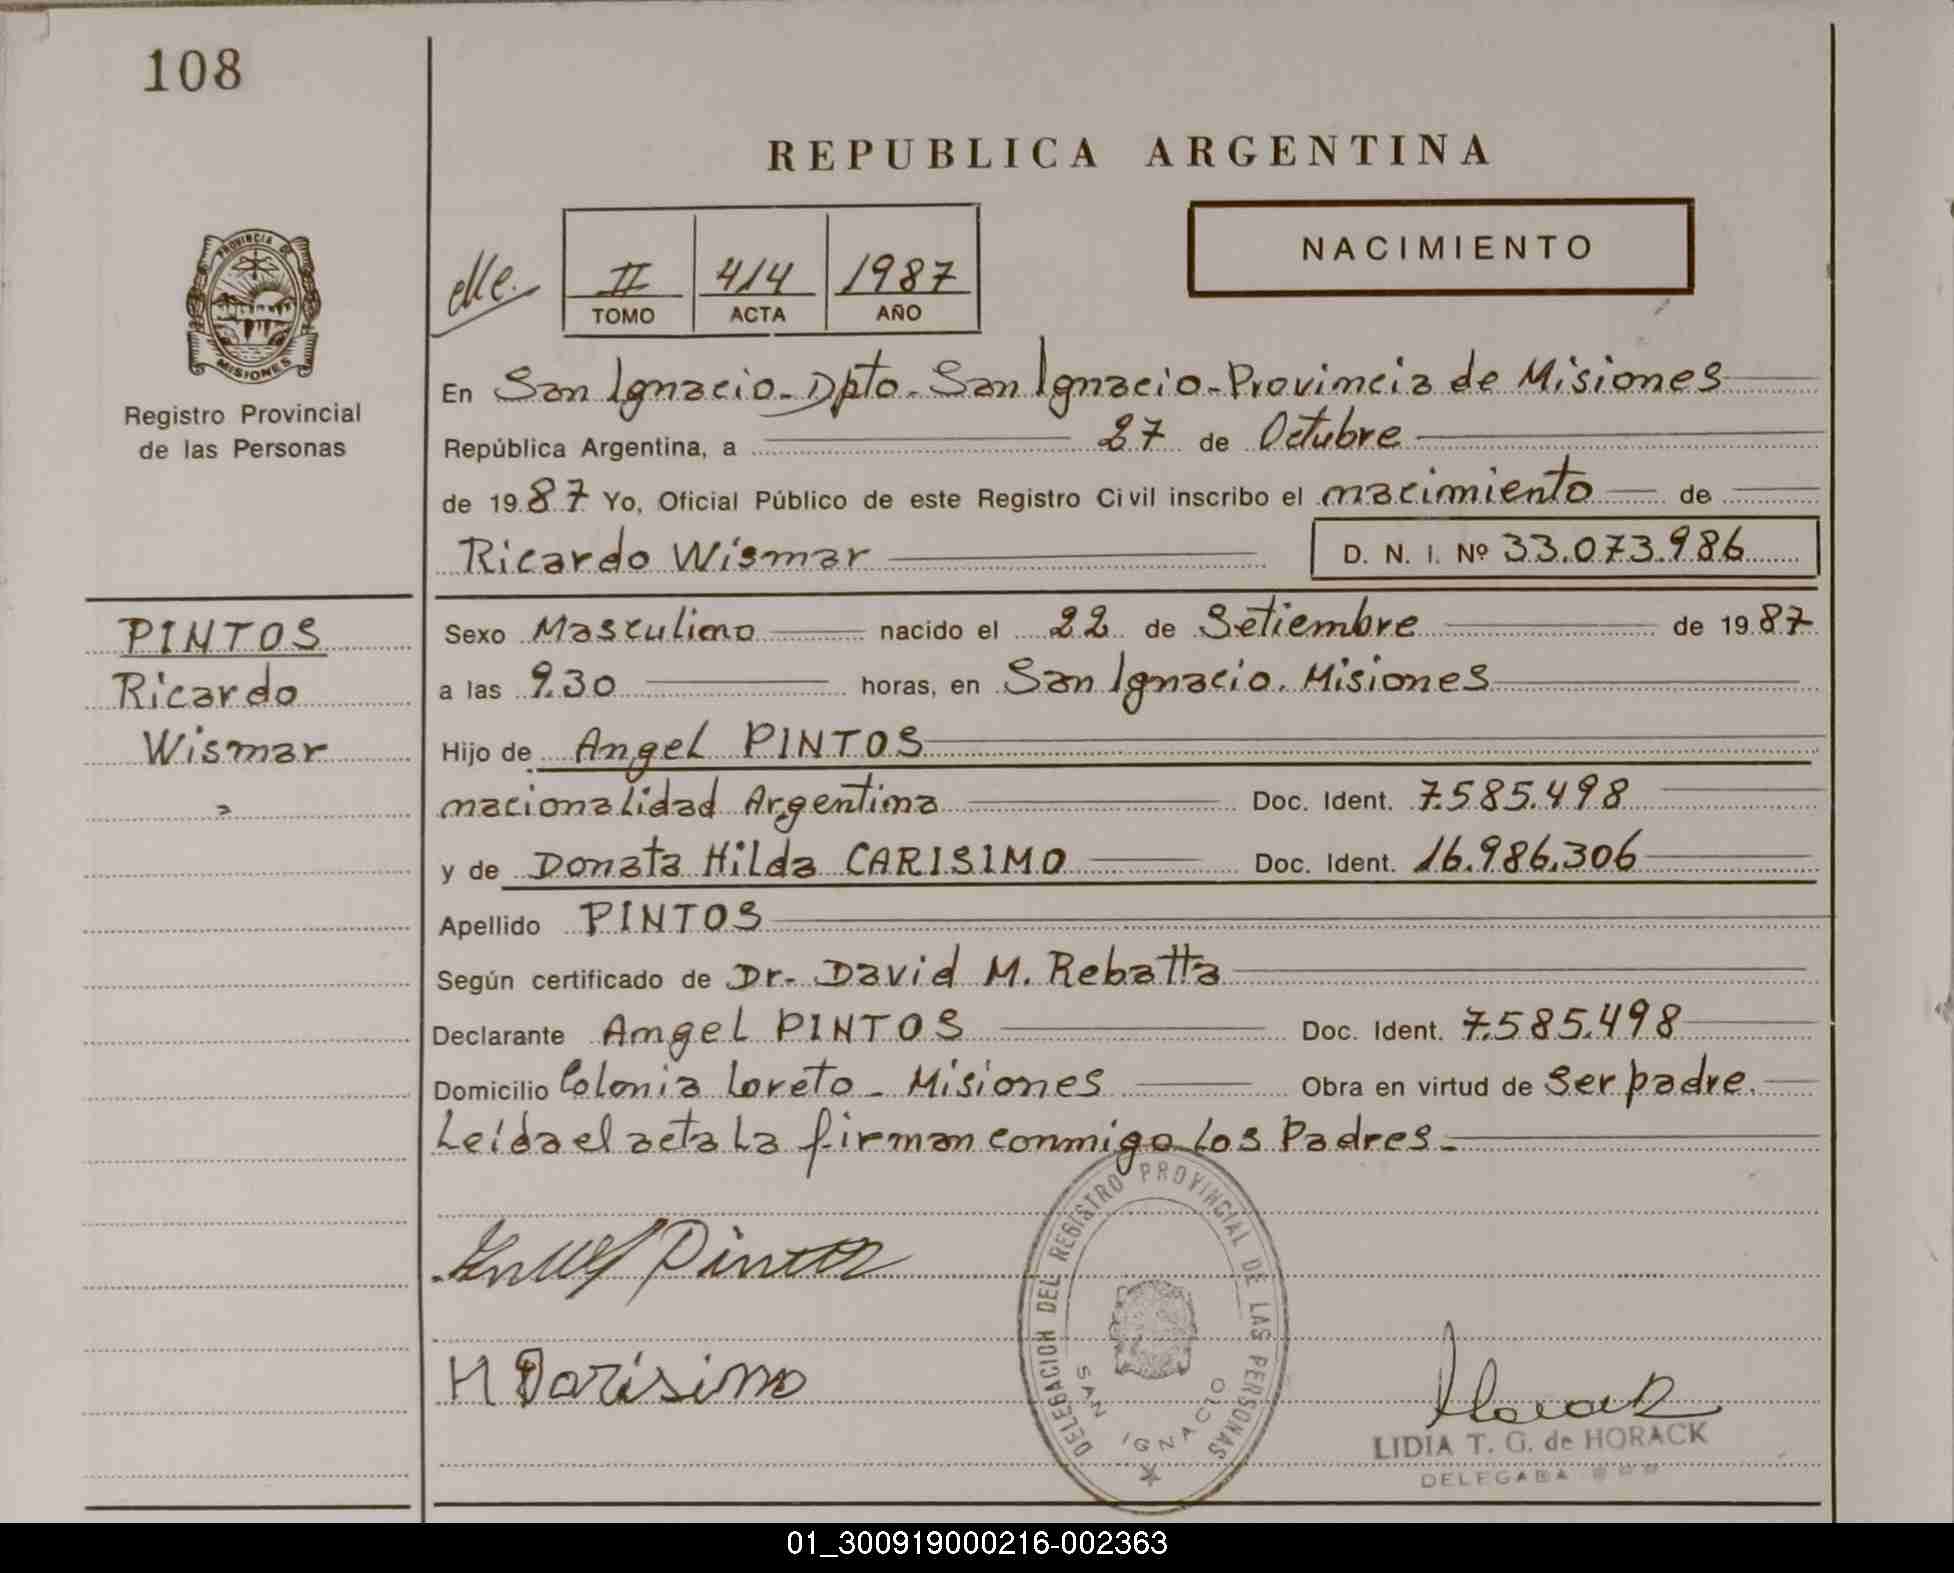 108
REPUBLICA ARGENTINA
NACIMIENTO
II 414 1987
TOMO ACTA AÑO
PROVINCIA DE
MISIONES
Registro Provincial
de las Personas
En San Ignacio - Dpto. San Ignacio - Provincia de Misiones
República Argentina, a 27 de Octubre
de 19 87 Yo, Oficial Público de este Registro Civil inscribo el nacimiento de
Ricardo Wismar D. N. I. Nº 33.073.986
PINTOS
Ricardo
Wismar
Sexo Masculino nacido el 22 de Setiembre de 19 87
a las 9.30 horas, en San Ignacio. Misiones
Hijo de Angel PINTOS
nacionalidad Argentina Doc. Ident. 7.585.498
y de Donata Hilda CARISIMO Doc. Ident. 16.986.306
Apellido PINTOS
Según certificado de Dr. David M. Rebatta
Declarante Angel PINTOS Doc. Ident. 7.585.498
Domicilio Colonia Loreto - Misiones Obra en virtud de Ser padre.
Leída el acta la firman conmigo los Padres.
DELEGACION DEL REGISTRO PROVINCIAL DE LAS PERSONAS
SAN IGNACIO
LIDIA T. G. de HORACK
DELEGADA
01_300919000216-002363